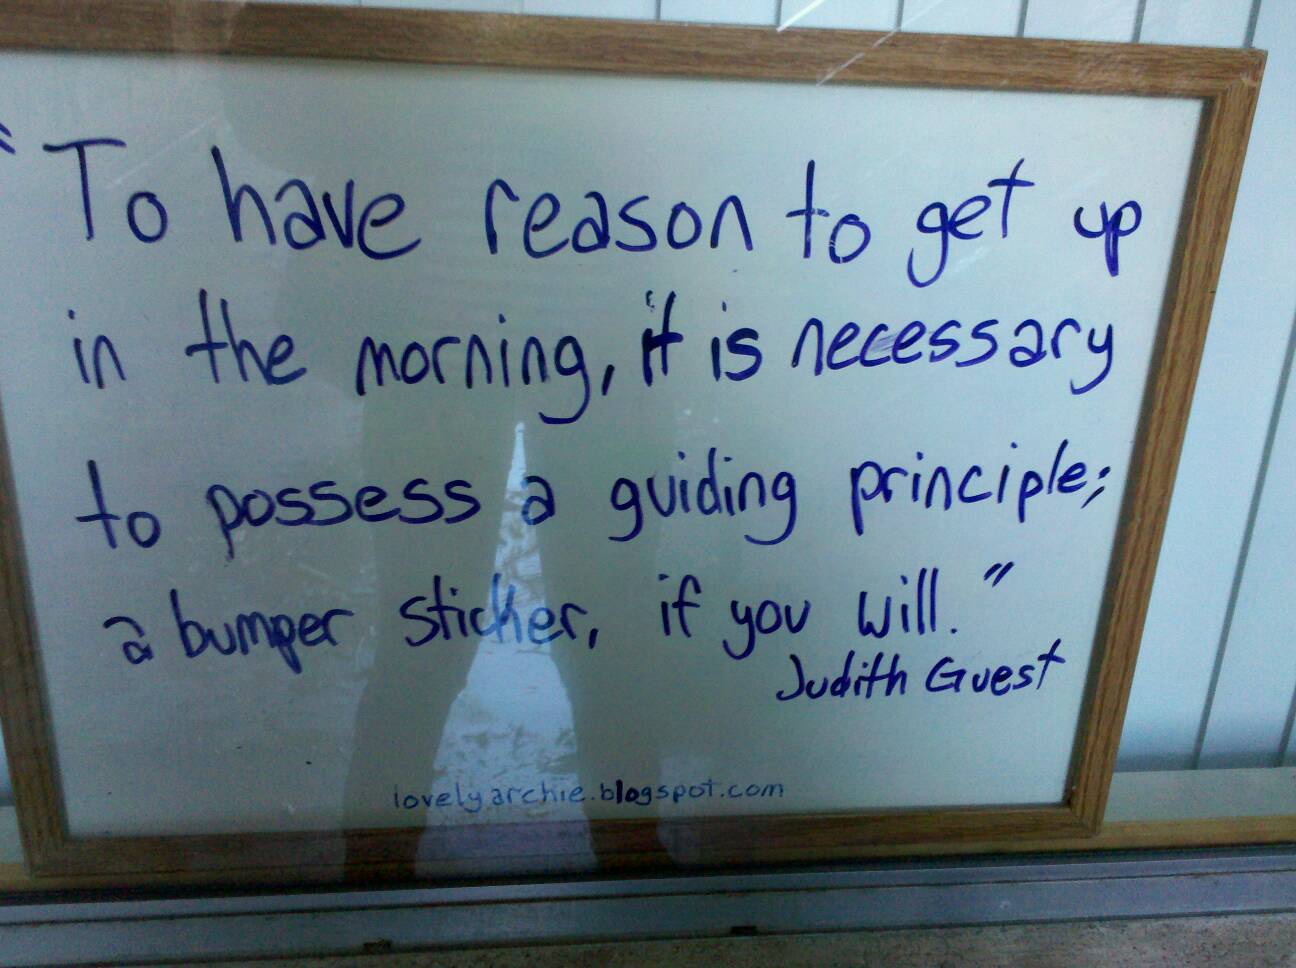 "To have reason to get up
in the morning, it is necessary
to possess a guiding principle;
a bumper sticker, if you will."
Judith Guest
lovelyarchie.blogspot.com